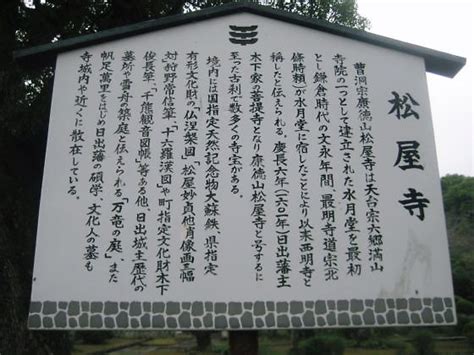 松屋寺
曹洞宗康徳山松屋寺は天台宗六郷満山
寺院の一つとして建立された水月堂を最初
とし鎌倉時代の文永年間、最明寺道宗(北
條時頼)が水月堂に宿したことにより以来西明寺と
称したと伝えられる。慶長六年(一六〇一年)日出藩主
木下家の菩提寺となり康徳山松屋寺と号するに
至った古刹で数多くの寺宝がある。
境内には国指定天然記念物大蘇鉄、県指定
有形文化財の「仏涅槃図」「松屋妙貞他肖像画三幅
対」狩野常信筆「十六羅漢図」や町指定文化財木下
俊長筆「千熊観音図帳」等ある他、日出城主歴代の
墓所や雪舟の築庭と伝えられる「万竜の庭」、また
帆足萬里をはじめ日出藩の碩学、文化人の墓も
寺域内や近くに散在している。